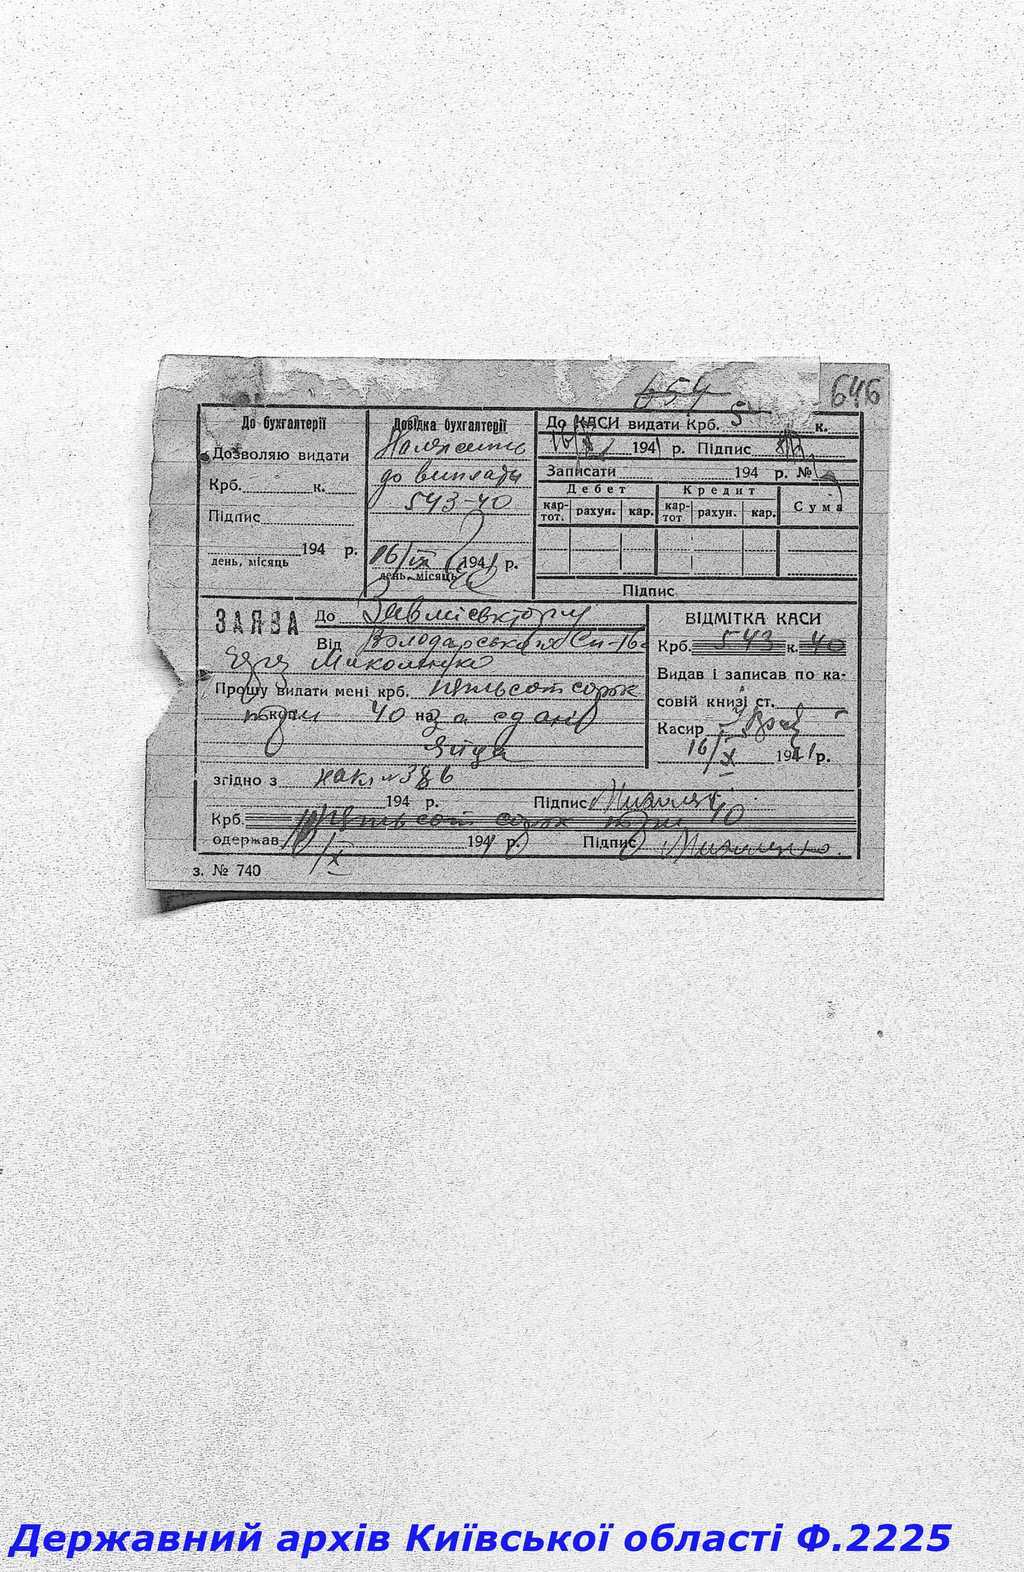 654 646
До бухгалтерії
Дозволяю видати
Крб. к.
Підпис
194 р.
день, місяць
Довідка бухгалтерії
Належить
до виплати
543-40
16/IX 1941 р.
день, місяць
До КАСИ видати Крб. 5 к.
16/X 1941 р. Підпис
Записати 194 р. №
Дебет Кредит Сума
кар-тот. рахун. кар. кар-тот рахун. кар.
Підпис
ЗАЯВА До
Від Володарське
Прошу видати мені крб. п'ятьсот сорок
три коп. 40 на за здані
яйця
згідно з накл №386
194 р. Підпис
Крб. п'ятьсот сорок три 40
одержав 1941 р. Підпис
/X
ВІДМІТКА КАСИ
Крб. 543 к. 40
Видав і записав по ка-
совій книзі ст.
Касир
16/X 1941 р.
з. № 740
Державний архів Київської області Ф.2225